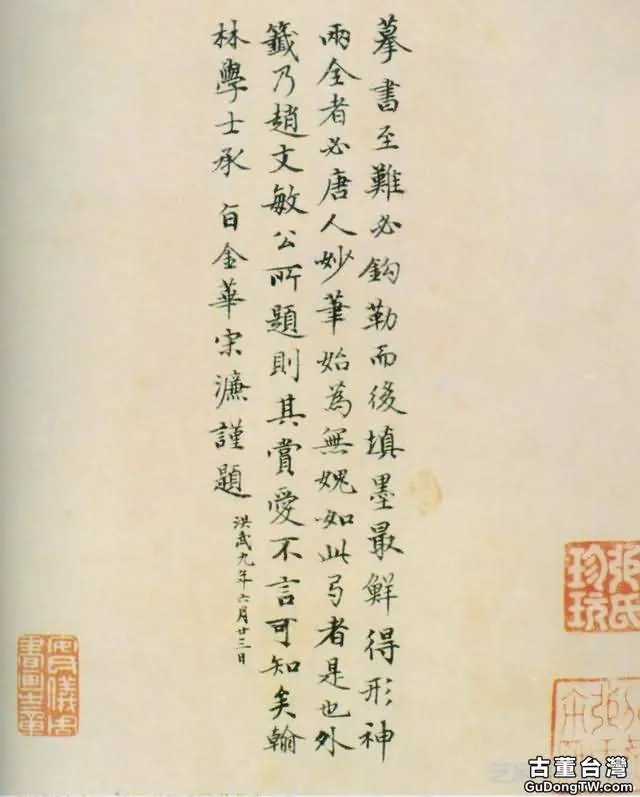 摹書至難必鈎勒而後填墨最鮮得形神
兩全者必唐人妙筆始為無媿如此弓者是也外
籤乃趙文敏公所題則其賞愛不言可知矣翰
林學士承旨金華宋濂謹題
洪武九年六月廿三日
張氏珍玩
安儀周書畫之章
古董台灣
GuDongTW.com